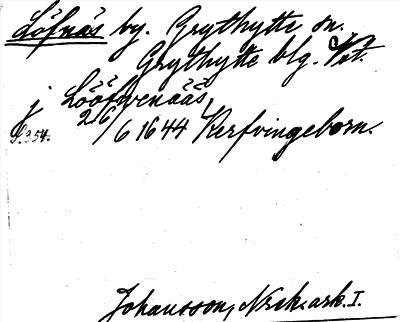 Löfnäs by. Grythytte sn.
Grythytte blg. Vst.
j Lööfwenääs,
S.354. 26/6 1644 Kerfvingeborn.
Johansson, Nrsk. ark. I.